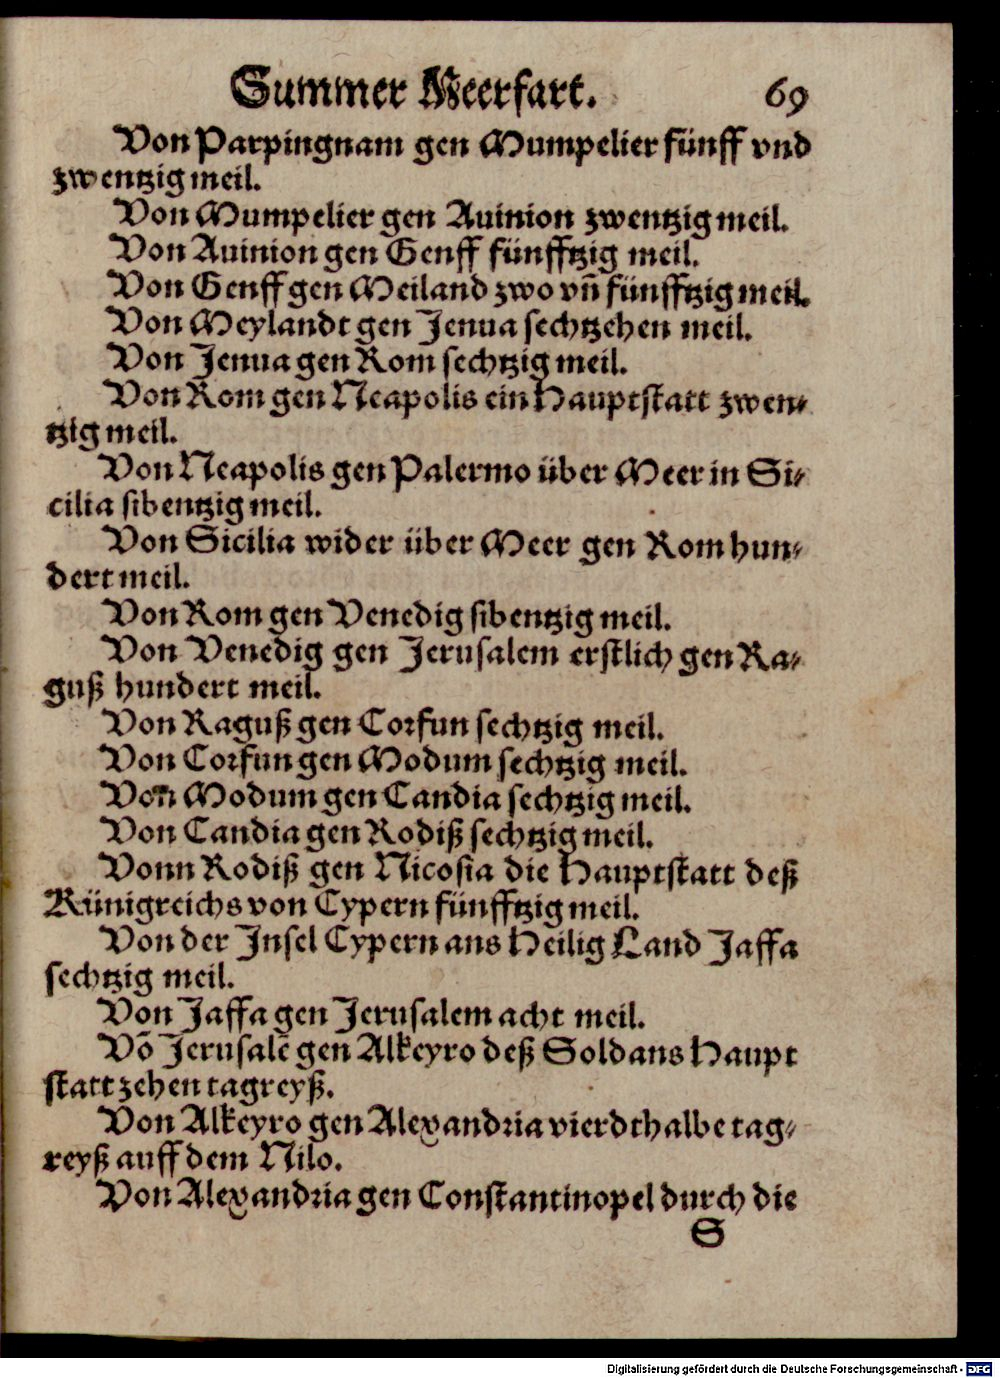 Summer Meerfart. 69
Von Parpingnam gen Mumpelier fünff vnd
zwentzig meil.
Von Mumpelier gen Auinion zwentzig meil.
Von Auinion gen Genff fünfftzig meil.
Von Genff gen Meiland zwo vñ fünfftzig meil.
Von Meylandt gen Jenua sechtzehen meil.
Von Jenua gen Rom sechtzig meil.
Von Rom gen Neapolis ein Hauptstatt zwen⸗
tzig meil.
Von Neapolis gen Palermo über Meer in Si⸗
cilia sibentzig meil.
Von Sicilia wider über Meer gen Rom hun⸗
dert meil.
Von Rom gen Venedig sibentzig meil.
Von Venedig gen Jerusalem erstlich gen Ra⸗
guß hundert meil.
Von Raguß gen Corfun sechtzig meil.
Von Corfun gen Modum sechtzig meil.
Von Modum gen Candia sechtzig meil.
Von Candia gen Rodiß sechtzig meil.
Vonn Rodiß gen Nicosia die Hauptstatt deß
Künigreichs von Cypern fünfftzig meil.
Von der Insel Cypern ans Heilig Land Jaffa
sechtzig meil.
Von Jaffa gen Jerusalem acht meil.
Võ Jerusalẽ gen Alkeyro deß Soldans Haupt
statt zehen tagreyß.
Von Alkeyro gen Alexandria vierdthalbe tag⸗
reyß auff dem Nilo.
Von Alexandria gen Constantinopel durch die
S
Digitalisierung gefördert durch die Deutsche Forschungsgemeinschaft - DFG